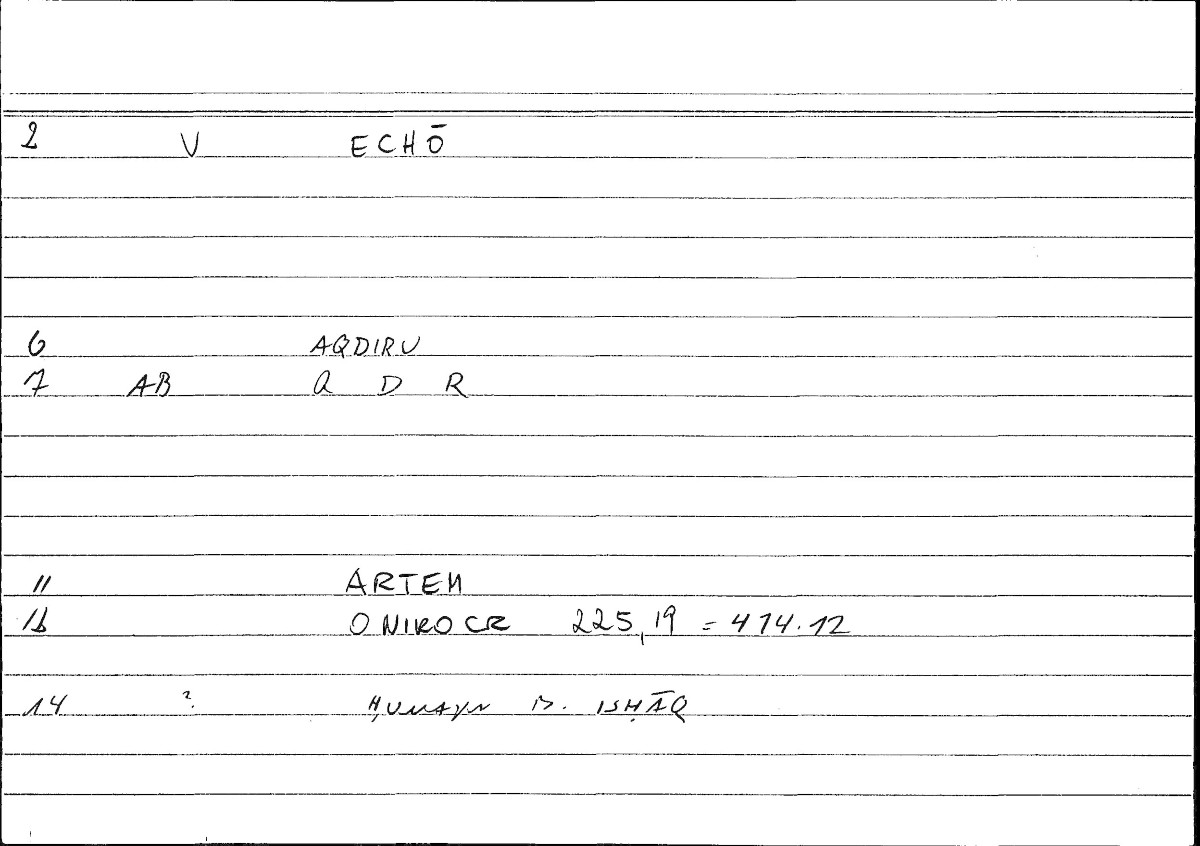 2 V ECHŌ
6 AQDIRU
7 AB Q D R
11 ARTEM
12 ONIROCR 225,19 = 474.12
14 ? ḤUNAYN B. ISḤĀQ